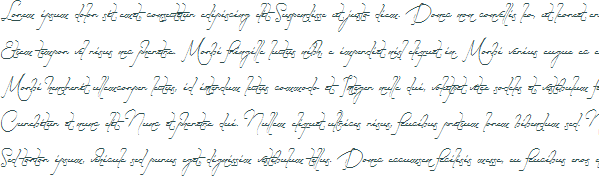 Lorem ipsum dolor sit amet, consectetur adipiscing elit. Suspendisse et justo diam. Donec non convallis leo, et laoreet
Etiam tempor vel risus nec pharetra. Morbi fringilla luctus nibh, a imperdiet nisl aliquet in. Morbi varius augue ac
Morbi hendrerit ullamcorper lectus, id interdum lectus commodo et. Integer nulla dui, volutpat vitae sodales et, vestibulum
Curabitur et nunc elit. Nunc et pharetra dui. Nullam aliquet ultrices risus, faucibus pretium lorem bibendum sed. N
Sed tortor ipsum, vehicula sed purus eget, dignissim vestibulum tellus. Donec accumsan facilisis massa, eu faucibus eros